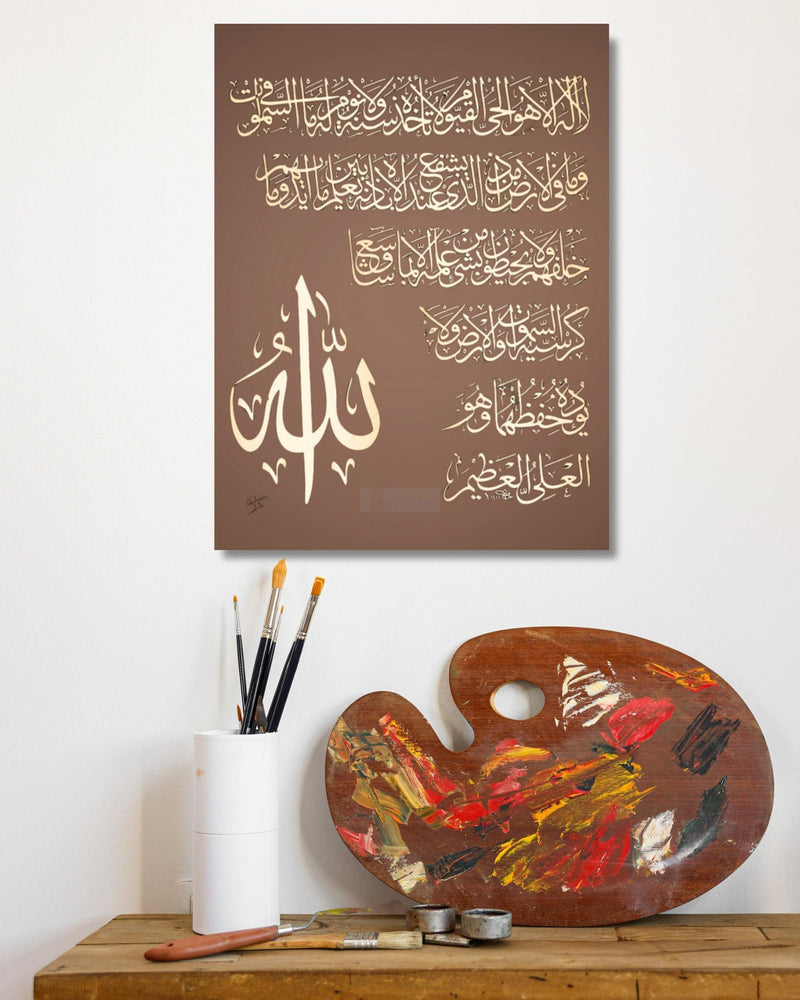 الله
لا اله الا هو الحى القيوم لا تأخذه سنة ولا نوم له ما فى السموت
وما فى الارض من ذا الذى يشفع عنده الا باذنه يعلم ما بين ايديهم وما
خلفهم ولا يحيطون بشئ من علمه الا بما شا وسع
كرسيه السموت والارض ولا
يوده حفظهما وهو
العلى العظيم